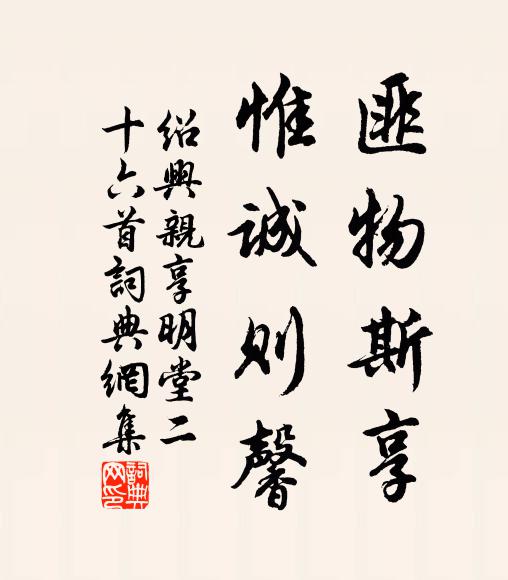 匪物斯享
惟诚则馨
绍興親享明堂二
十六首詞典網集
詞典网印